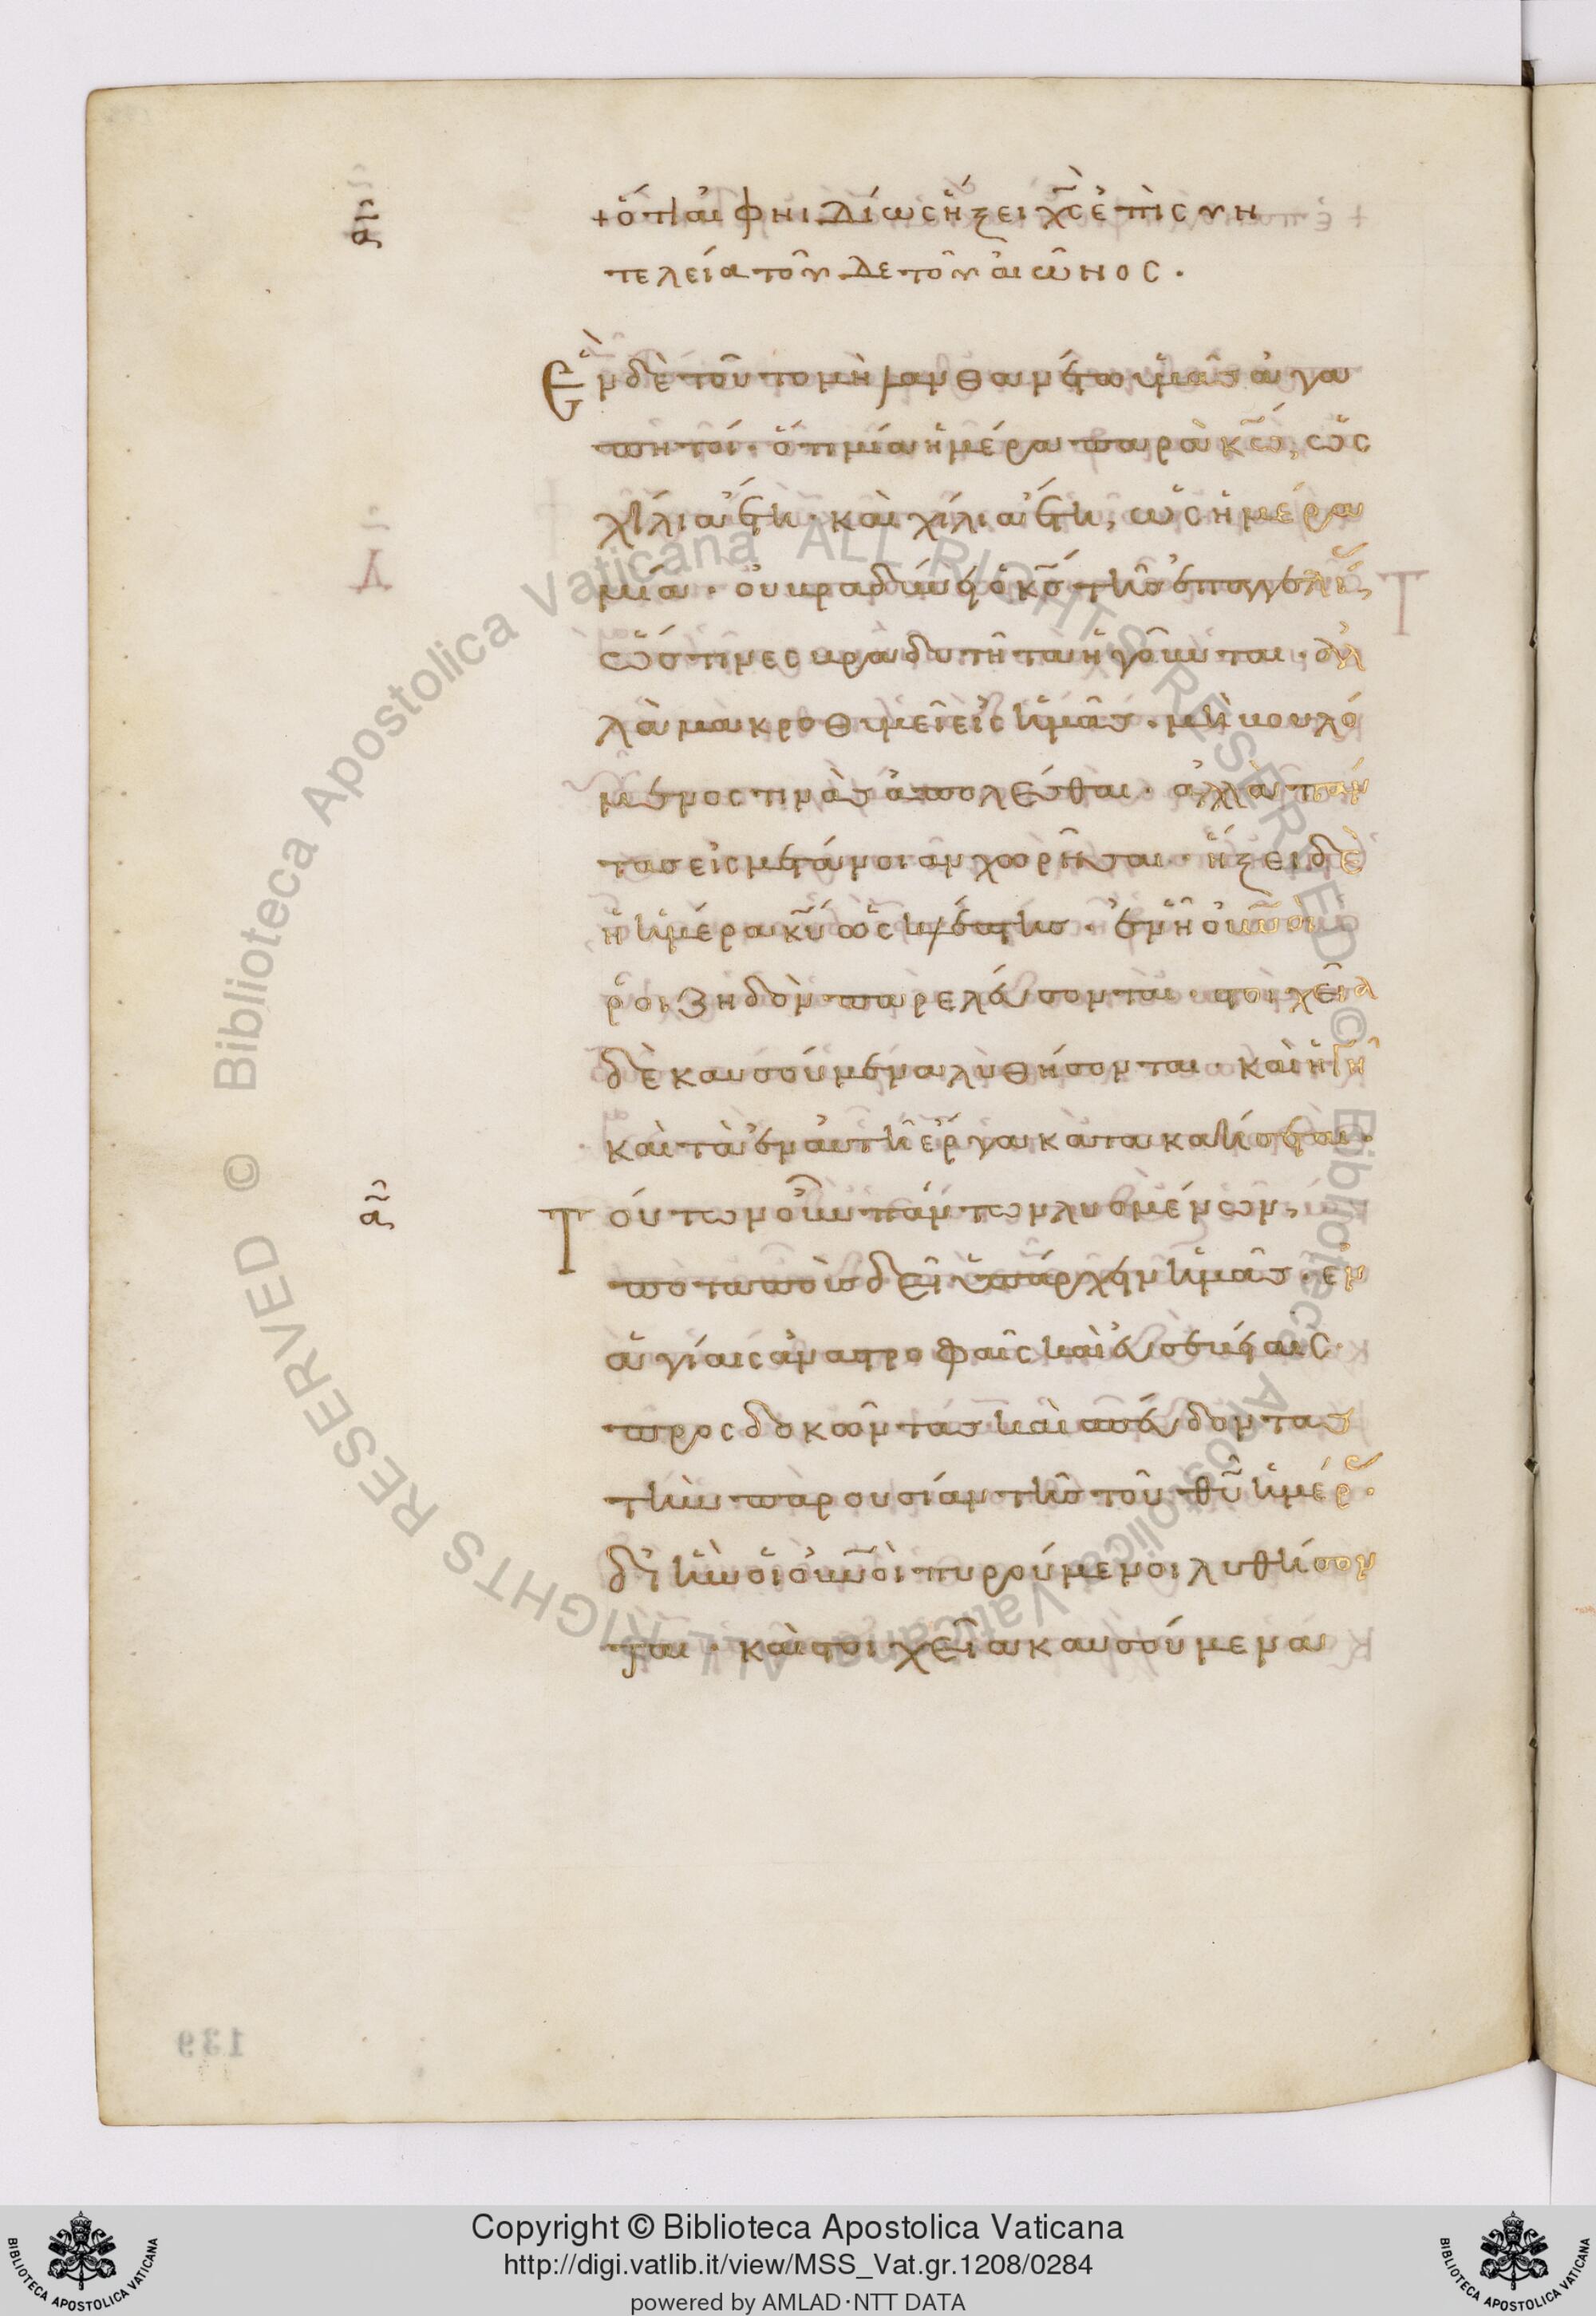 + ὅτι αἰφνιδίως ἥξει χς ἐπι συν
τελεία τοῦδε τοῦ αἰῶνος .
Ἓν δὲ τοῦτο μὴ λανθανέτω ὑμᾶς ἀγα
πητοί · ὅτι μία ἡμέρα παρὰ κω, ὡς
χίλια ἔτη · καὶ χίλια ἔτη, ὡς ἡμέρα
μία · οὐ βραδύνει ὁ κς τῆς ἐπαγγελίας,
ὥς τινες βραδυτῆτα ἡγοῦνται · ἀλ
λὰ μακροθυμεῖ εἰς ἡμᾶς · μὴ βουλό
μενός τινας ἀπολέσθαι · ἀλλὰ πάν
τας εἰς μετάνοιαν χωρῆσαι · ἥξει δὲ
ἡ ἡμέρα κυ ὡς κλέπτης · ἐν ἧ οὐνοὶ
ῥοιζηδὸν παρελεύσονται · στοιχεῖα
δὲ καυσούμενα λυθήσονται · καὶ ἡ γῆ
καὶ τὰ ἐν αὐτῆ ἔργα κατακαήσεται ·
Τούτων οὖν πάντων λυομένων,
ποταποὺς δεῖ ὑπάρχειν ἡμᾶς · ἐν
ἁγίαις ἀναστροφαῖς καὶ εὐσεβείαις ·
προσδοκῶντας καὶ σπεύδοντας
τὴν παρουσίαν τῆς τοῦ θυ ἡμέρας ·
δι' ἣν οἱ οὐνοὶ πυρούμενοι λυθήσον
ται · καὶ στοιχεῖα καυσούμενα
139
Copyright © Biblioteca Apostolica Vaticana
http://digi.vatlib.it/view/MSS_Vat.gr.1208/0284
powered by AMLAD·NTT DATA
BIBLIOTECA APOSTOLICA VATICANA
BIBLIOTECA APOSTOLICA VATICANA
© Biblioteca Apostolica Vaticana ALL RIGHTS RESERVED © Biblioteca Apostolica Vaticana ALL RIGHTS RESERVED